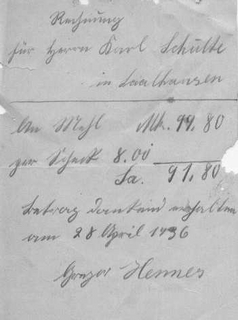 Rechnung
für Herrn Karl Schülte
in Saalhausen
An Mehl Mk. 99,80
per Scheck 8.00
Sa. 91,80
betrag dankend erhalten
am 28 April 1936
Gregor Hennes